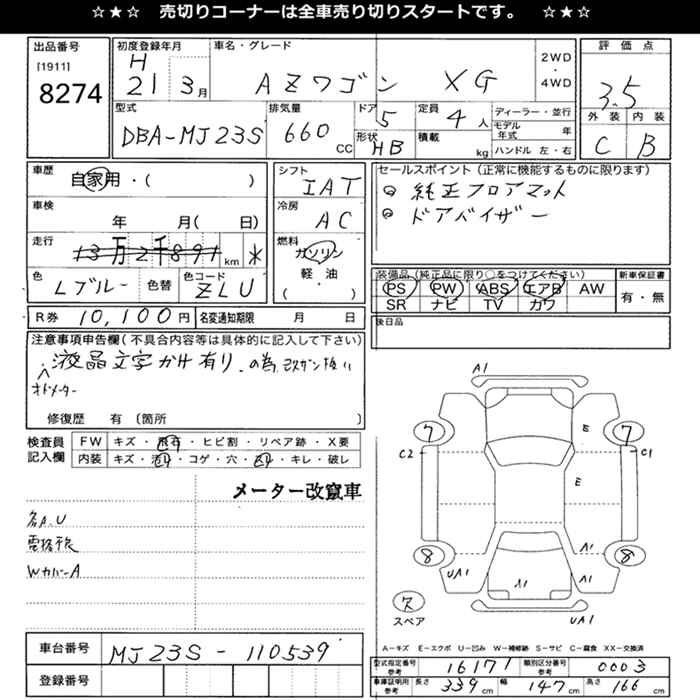 ☆★☆ 売切りコーナーは全車売り切りスタートです。 ☆★☆
出品番号
[1911]
8274
初度登録年月
H
21 3月
車名・グレード
AZワゴン XG
2WD
・
4WD
評価点
3.5
外装 内装
C B
型式
DBA-MJ23S
排気量
660 CC
ドア
5
形状
HB
定員
4人
積載
kg
ディーラー・並行
モデル年式 年
ハンドル 左・右
車歴
自家用・( )
車検
年 月( 日)
走行
13万2千891km
色
Lブルー 色替
色コード
ZLU
シフト
IAT
冷房
AC
燃料
ガソリン
軽油
( )
セールスポイント(正常に機能するものに限ります)
純正フロアマット
ドアバイザー
装備品(純正品に限り○をつけてください)
PS PW ABS エアB AW
SR ナビ TV カワ
新車保証書
有・無
後日品
R券 10,100円 名変通知期限 月 日
注意事項申告欄(不具合内容等は具体的に記入して下さい)
液晶文字かけ有り.の為、改ザン扱い
オドメーター
修復歴 有 〔箇所 〕
検査員
記入欄
FW キズ・飛石・ヒビ割・リペア跡・X要
内装 キズ・汚れ・コゲ・穴・・キレ・破レ
メーター改竄車
各A.U
WカバーA
車台番号
MJ23S-110539
登録番号
A1
7 7
C2 C1
E
E
8 8
UA1
A1
A1
A1
UA1
ス
スペア
A-キズ E-エクボ U-凹み W-補修跡 S-サビ C-腐食 XX-交換済
型式指定番号
参考
16171
類別区分番号
参考
0003
車庫証明用
参考
長さ 339cm 幅 147cm 高さ 166cm